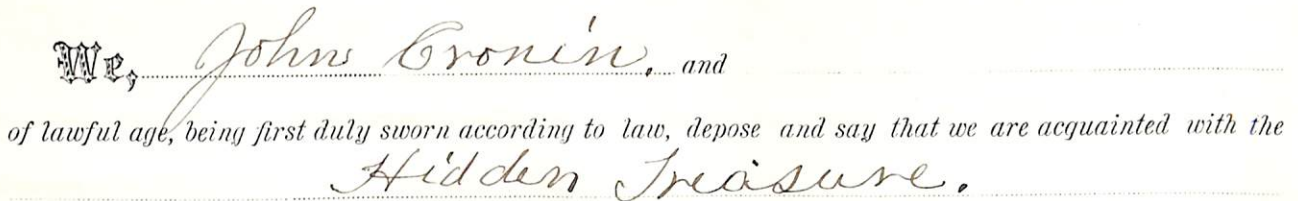 We, John Cronin. and
of lawful age, being first duly sworn according to law, depose and say that we are acquainted with the
Hidden Treasure.